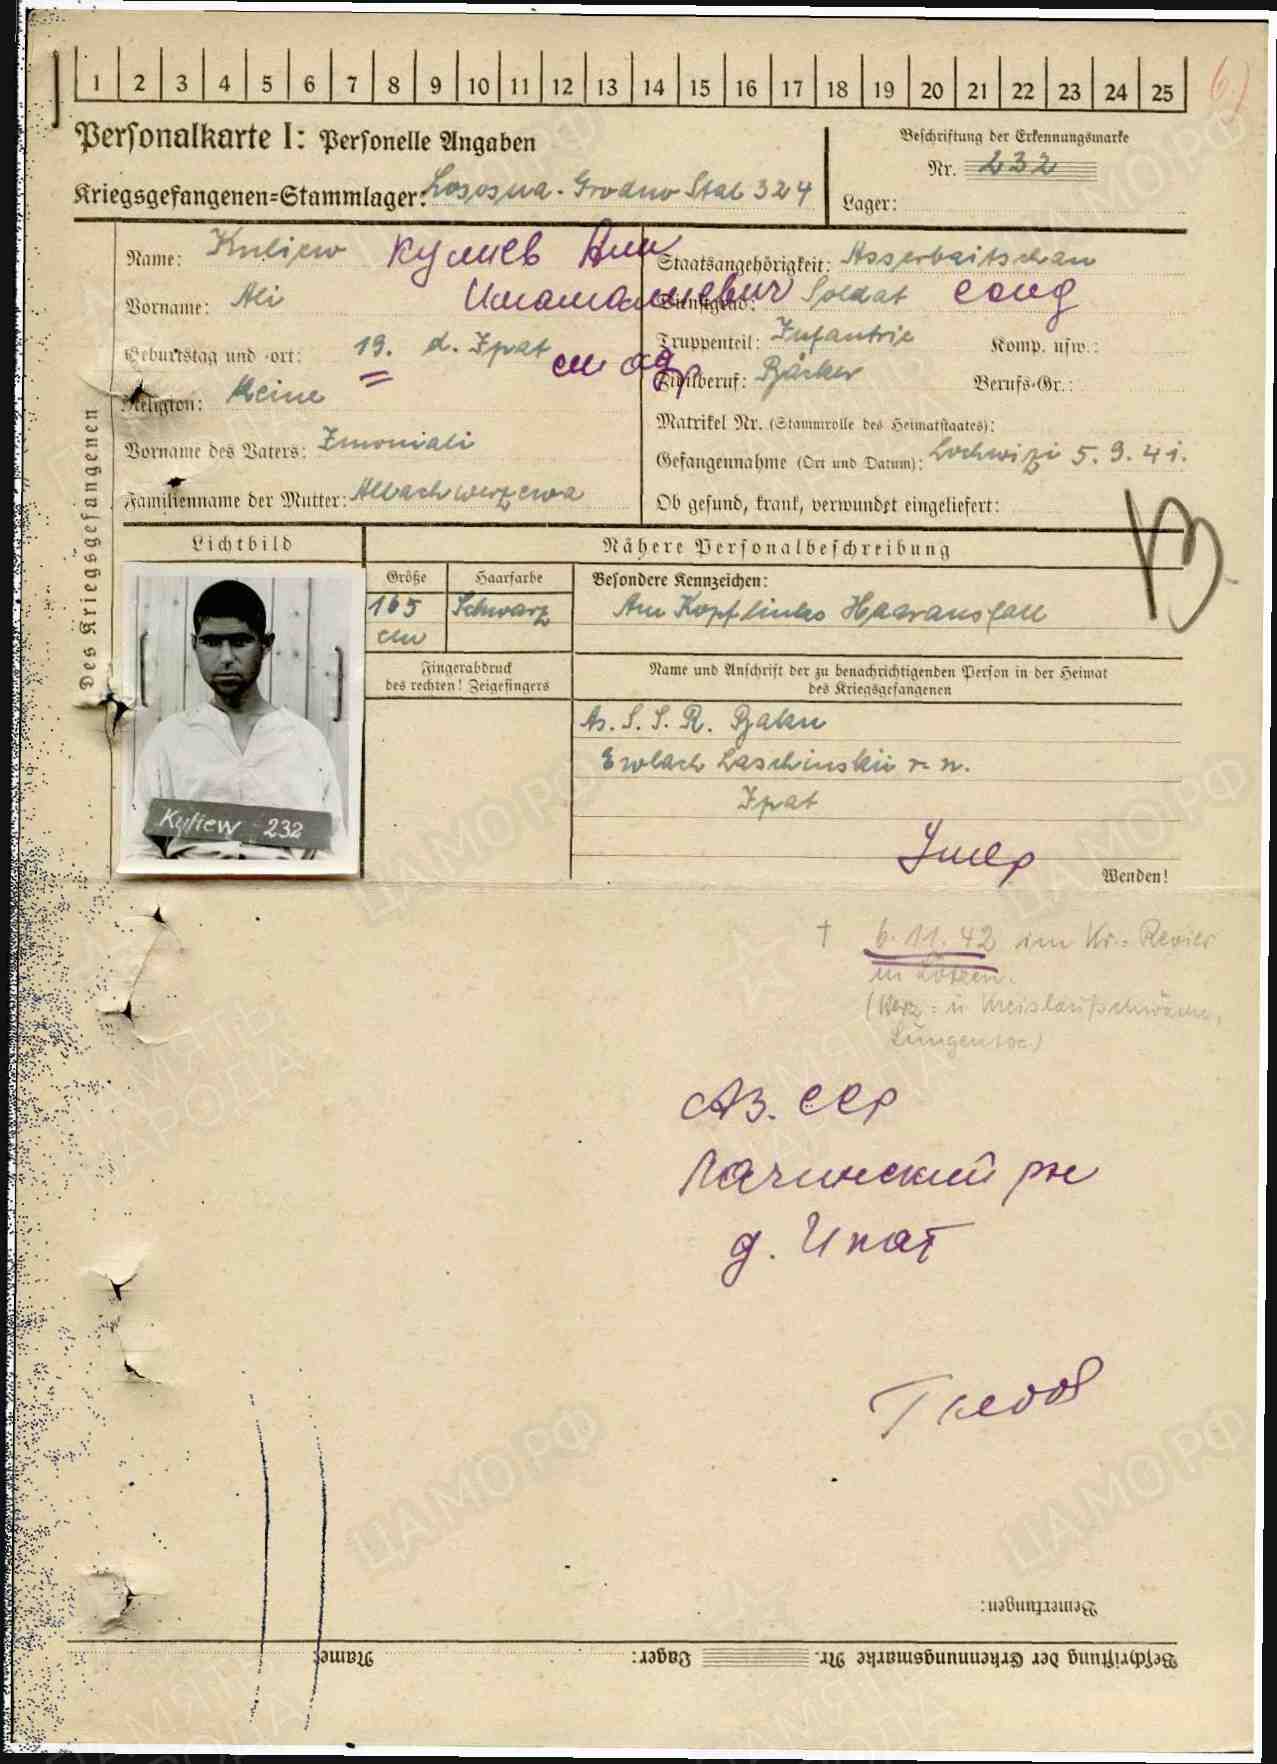 1 2 3 4 5 6 7 8 9 10 11 12 13 14 15 16 17 18 19 20 21 22 23 24 25
Personalkarte I: Personelle Angaben
Beschriftung der Erkennungsmarke
Nr. 232
Kriegsgefangenen=Stammlager: Lososna - Grodno Stal 324
Lager:
Des Kriegsgefangenen
Name: Kuliew Кулиев Али
Staatsangehörigkeit: Asserbaitschan
Vorname: Ali Имамалиевич
Dienstgrad: Soldat солд
Geburtstag und =ort: 19. d. Ipat
Truppenteil: Infantrie Komp. usw.:
Zivilberuf: Bäcker Berufs=Gr.:
Religion: Keine
Matrikel Nr. (Stammrolle des Heimatstaates):
Vorname des Vaters: Imoniali
Gefangennahme (Ort und Datum): Lochwizi 5.9.41.
Familienname der Mutter: Allachwerzewa
Ob gesund, krank, verwundet eingeliefert:
Lichtbild
Nähere Personalbeschreibung
Größe Haarfarbe Besondere Kennzeichen:
165 cm Schwarz Am Kopf links Haarausfall
Fingerabdruck
des rechten! Zeigefingers
Name und Anschrift der zu benachrichtigenden Person in der Heimat
des Kriegsgefangenen
As. S. S. R. Baku
Ewlach Laschinskii r-n.
Ipat
Kyliew 232
Умер
Wenden!
† 6.11.42 im Kr.=Revier
in Lötzen.
Аз. ССР
Лачинский рн
д. Ипат
Bemerkungen:
Beschriftung der Erkennungsmarke Nr. Lager: Name:
ЦАМО РФ
ПАМЯТЬ НАРОДА